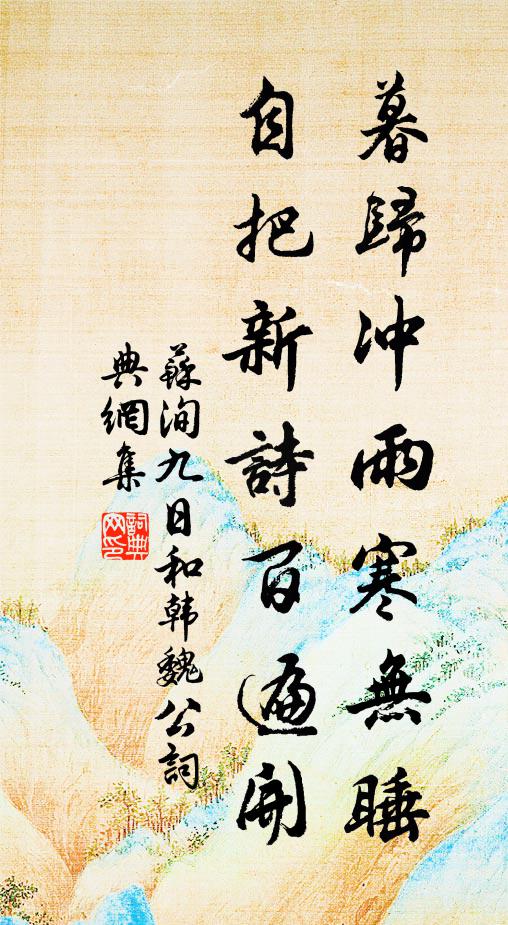 暮歸冲雨寒無睡
自把新詩百遍開
蘇洵九日和韩魏公詞
典網集
詞典
网印